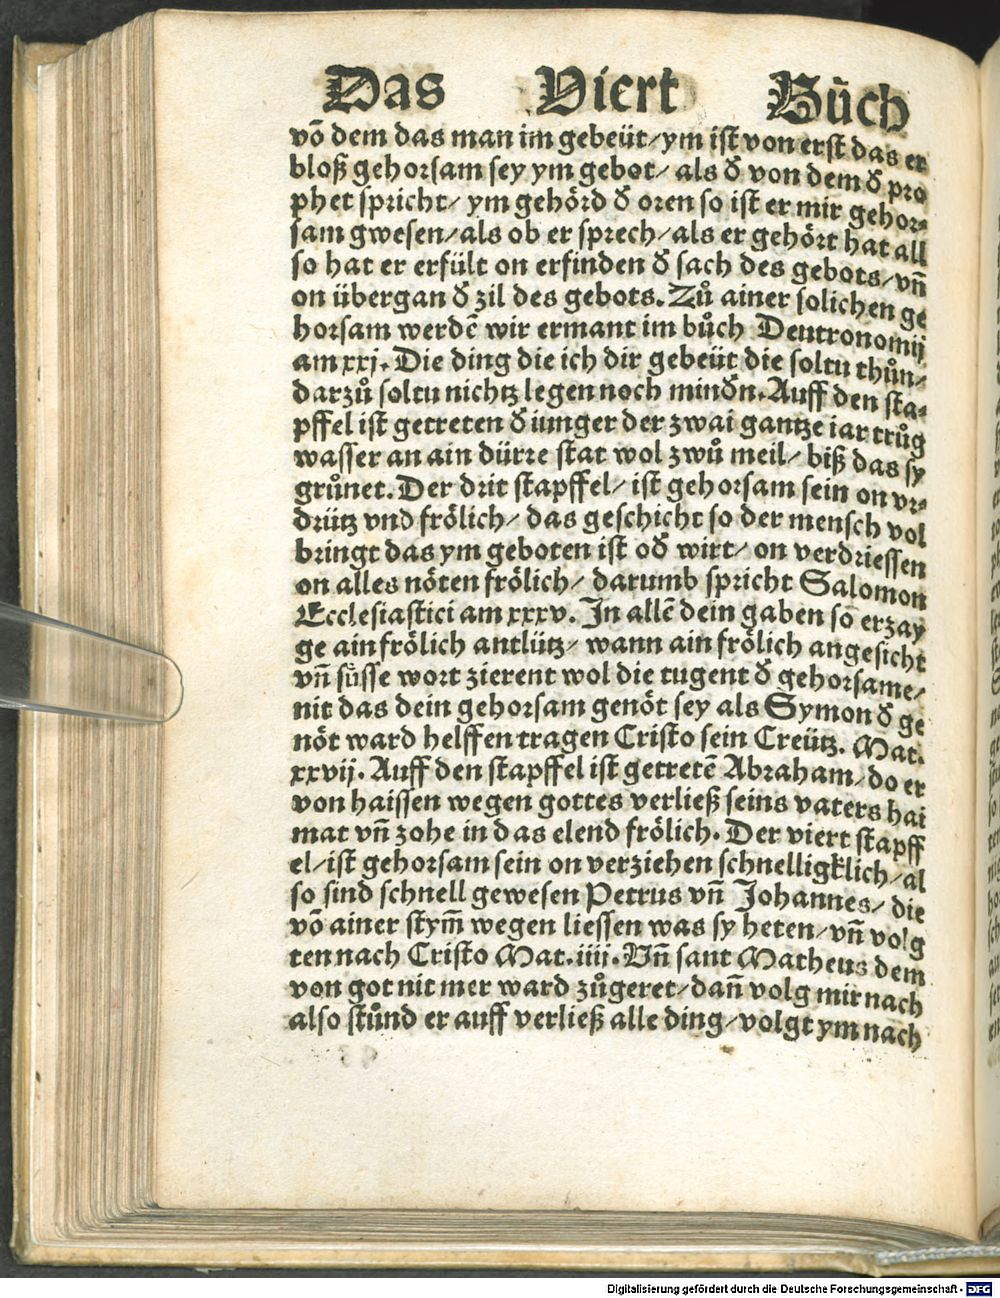 Das Viert Bůch
võ dem das man im gebeüt/ ym ist von erst das er
bloß gehorsam sey ym gebot/ als ð von dem ð pro
phet spricht/ ym gehörd ð oren so ist er mir gehor-
sam gwesen/ als ob er sprech/ als er gehört hat all
so hat er erfült on erfinden ð sach des gebots/ vñ
on übergan ð zil des gebots. Zů ainer solichen ge
horsam werdē wir ermant im bůch Deutronomij
am xxj. Die ding die ich dir gebeüt die soltu thůn/
darzů soltu nichtz legen noch minðn. Auff den sta-
pffel ist getreten ð iunger der zwai gantze iar trůg
wasser an ain dürre stat wol zwů meil/ biß das sy
grůnet. Der drit stapffel/ ist gehorsam sein on vr-
drütz vnd frölich/ das geschicht so der mensch vol
bringt das ym geboten ist oð wirt/ on verdriessen
on alles nöten frölich/ darumb spricht Salomon
Ecclesiastici am xxxv. In allē dein gaben so erzay
ge ain frölich antlütz/ wann ain frölich angesicht
vñ süsse wort zierent wol die tugent ð gehorsame/
nit das dein gehorsam genöt sey als Symon ð ge
nöt ward helffen tragen Cristo sein Creütz. Mat.
xxvij. Auff den stapffel ist getretē Abraham/ do er
von haissen wegen gottes verließ seins vaters hai
mat vñ zohe in das elend frölich. Der viert stapff
el/ ist gehorsam sein on verziehen schnelligklich/ al
so sind schnell gewesen Petrus vñ Johannes/ die
võ ainer stym̃ wegen liessen was sy heten/ vñ volg
ten nach Cristo Mat. iiij. Vñ sant Matheus dem
von got nit mer ward zůgeret/ dañ volg mir nach
also stůnd er auff verließ alle ding/ volgt ym nach
Digitalisierung gefördert durch die Deutsche Forschungsgemeinschaft - DFG